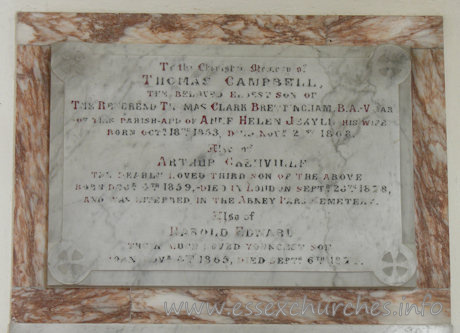 To the Cherished Memory of
THOMAS CAMPBELL,
THE BELOVED ELDEST SON OF
THE REVEREND THOMAS CLARK BRETTINGHAM, B.A. VICAR
OF THE PARISH AND OF HELEN JEKYLL HIS WIFE
BORN OCTR 18TH 1853, DIED NOVR 1868.
Also of
ARTHUR GRENVILLE
THE DEARLY LOVED THIRD SON OF THE ABOVE
BORN 1859, DIED IN LONDON SEPTR 1878,
AND WAS INTERRED IN THE ABNEY PARK CEMETERY.
Also of
HAROLD EDWARD
LOVED YOUNGEST SON
BORN 1865, DIED SEPTR 6TH
www.essexchurches.info